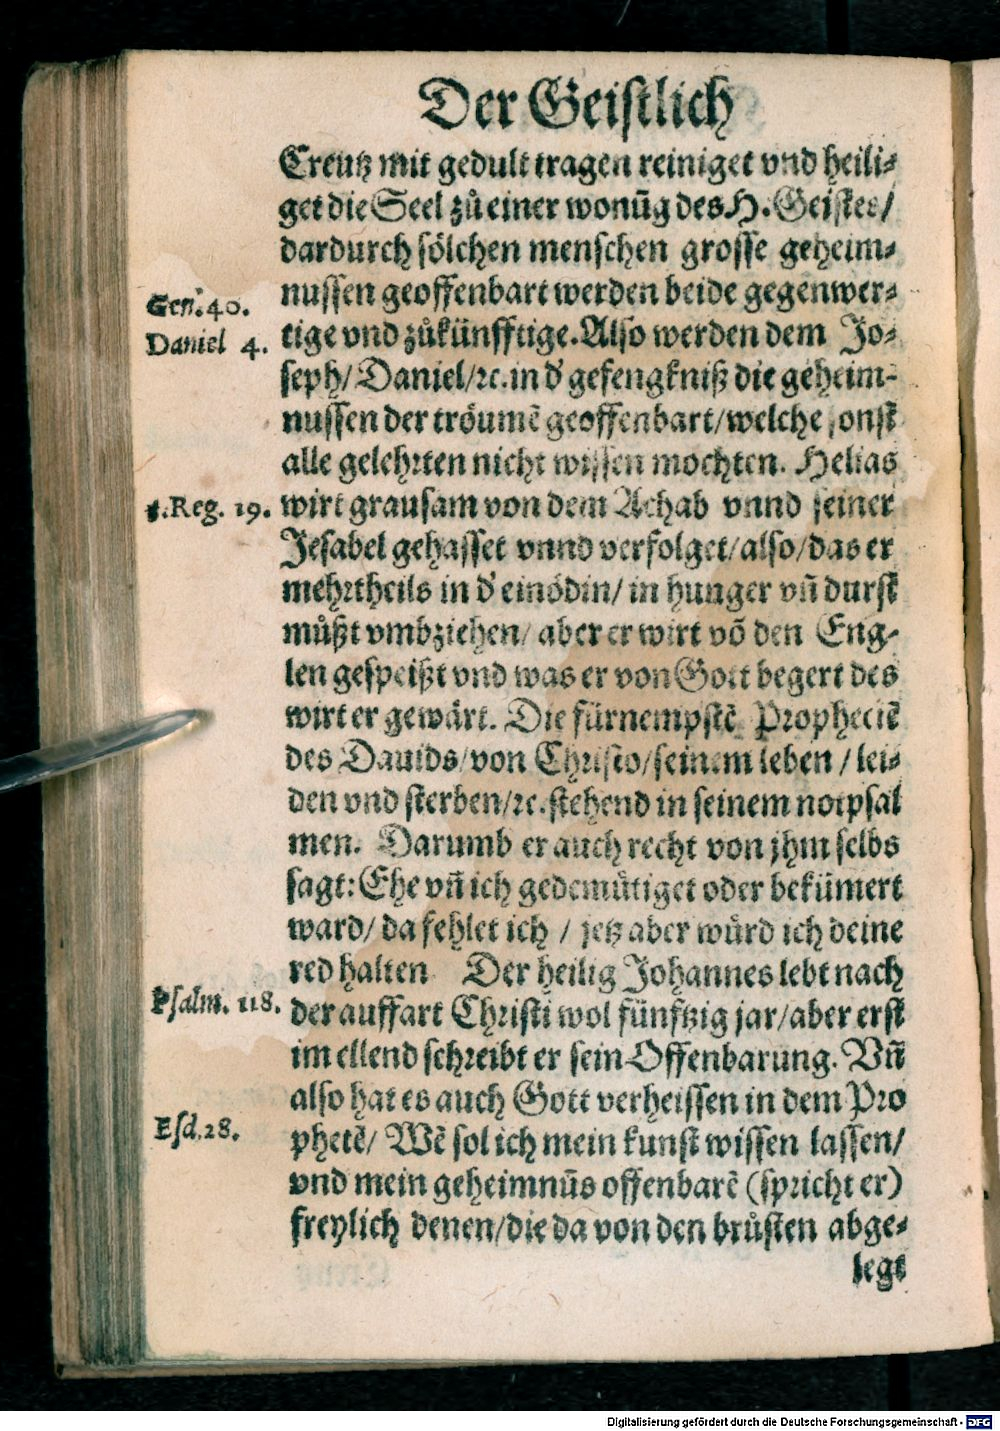 Der Geistlich
Creutz mit gedult tragen reiniget vnd heili-
get die Seel zů einer wonūg des H. Geistes/
dardurch sölchen menschen grosse geheim-
nussen geoffenbart werden beide gegenwer-
Gen. 40.
tige vnd zůkünfftige. Also werden dem Jo-
Daniel 4.
seph/ Daniel/ꝛc. in d' gefengkniß die geheim-
nussen der tröumē geoffenbart/welche sonst
alle gelehrten nicht wissen mochten. Helias
wirt grausam von dem Achab vnnd seiner
.Reg. 19.
Jesabel gehasset vnnd verfolget/also/das er
mehrtheils in d' einödin/ in hunger vn̄ durst
můßt vmbziehen/ aber er wirt vō den Eng-
len gespeißt vnd was er von Gott begert des
wirt er gewärt. Die fürnempstē Propheciē
des Dauids/von Christo/seinem leben / lei-
den vnd sterben/ꝛc. stehend in seinem notpsal
men. Darumb er auch recht von jhm selbs
sagt: Ehe vn̄ ich gedemütiget oder bekümert
ward/ da fehlet ich / jetz aber würd ich deine
red halten Der heilig Johannes lebt nach
Psalm. 118.
der auffart Christi wol fünfftzig jar/aber erst
im ellend schreibt er sein Offenbarung. Vn̄
also hat es auch Gott verheissen in dem Pro
Esd. 28.
phetē/ Wē sol ich mein kunst wissen lassen/
vnd mein geheimnūs offenbarē (spricht er)
freylich denen/die da von den brüsten abge-
legt
Digitalisierung gefördert durch die Deutsche Forschungsgemeinschaft - DFG